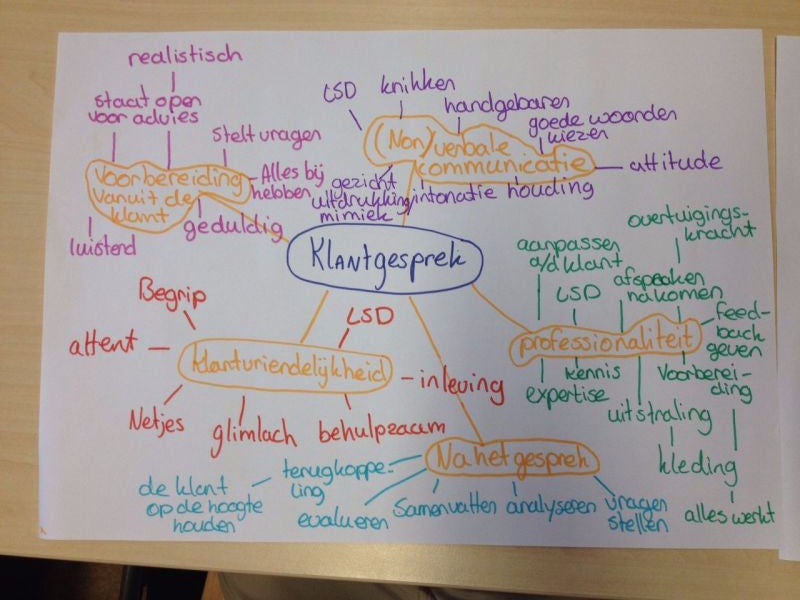 realistisch
staat open
voor advies
stelt vragen
Voorbereiding
vanuit de
klant
Alles bij
hebben
geduldig
luistend
LSD
knikken
handgebaren
goede woorden
kiezen
(Non)verbale
communicatie
attitude
gezicht
uitdrukking/
mimiek
intonatie
houding
Klantgesprek
overtuigings-
kracht
aanpassen
a/d klant
LSD
afspraken
nakomen
feed-
back
geven
professionaliteit
kennis
expertise
Voorberei-
ding
uitstraling
kleding
alles werkt
Begrip
LSD
attent
klantvriendelijkheid
inleving
Netjes
glimlach
behulpzaam
Na het gesprek
terugkoppe-
ling
de klant
op de hoogte
houden
evalueren
Samenvatten
analyseren
vragen
stellen